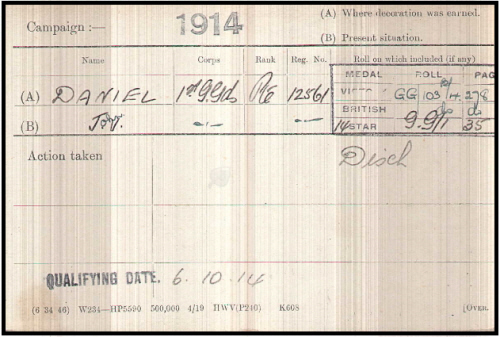 (A) Where decoration was earned.
Campaign :— 1914
(B) Present situation.
Name Corps Rank Reg. No. Roll on which included (if any)
MEDAL ROLL PAG
(A) DANIEL 1st G. Gds Pte 12561 GG 103 278
BRITISH do do
(B) 14 STAR G.G/1 35
Action taken Disch
QUALIFYING DATE. 6.10.14
(6 34 46) W234—HP5590 500,000 4/19 HWV(P240) K608 [OVER.